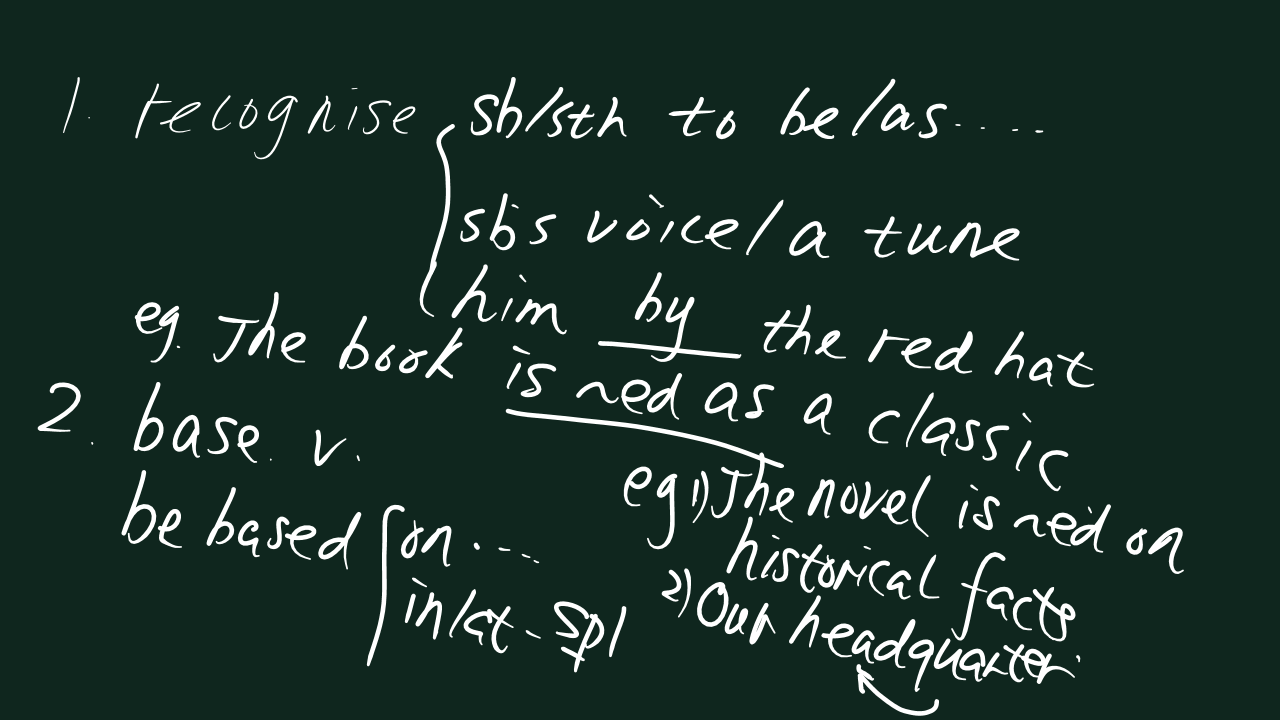 1. recognise sb/sth to be/as....
sb's voice/a tune
him by the red hat
eg. The book is ~ed as a classic
2. base. v.
be based on....
in/at - spl
eg 1) The novel is ~ed on
historical facts
2) Our headquarter